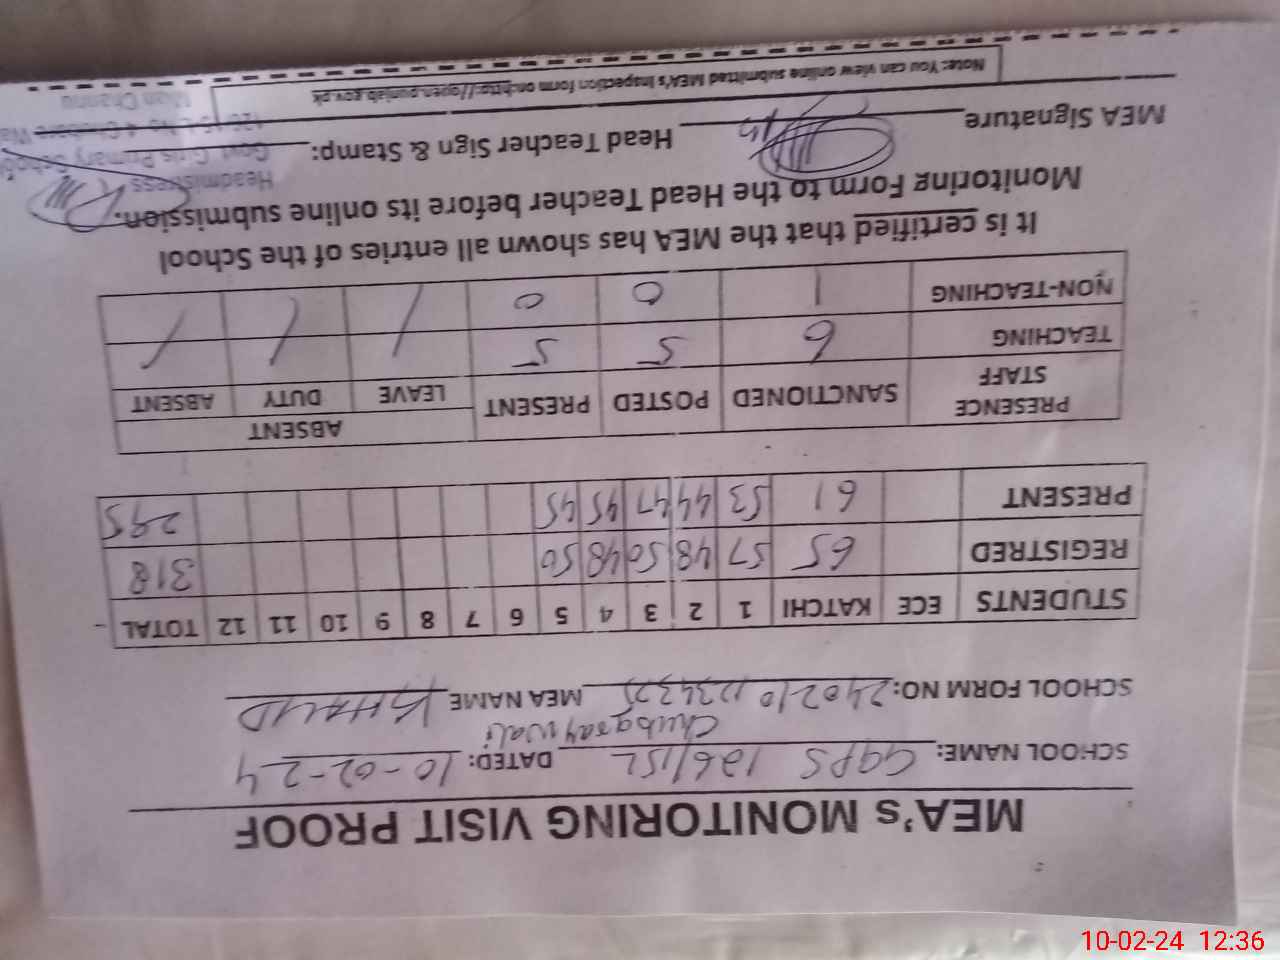 MEA's MONITORING VISIT PROOF
SCHOOL NAME: GGPS 126/15L DATED: 10-02-24
SCHOOL FORM NO: MEA NAME KHALID
STUDENTS ECE KATCHI 1 2 3 4 5 6 7 8 9 10 11 12 TOTAL
REGISTRED 65 57 48 50 48 50 318
PRESENT 61 53 44 47 45 45 295
PRESENCE STAFF SANCTIONED POSTED PRESENT ABSENT
LEAVE DUTY ABSENT
TEACHING 6 5 5 / / /
NON-TEACHING 1 0 0
It is certified that the MEA has shown all entries of the School
Monitoring Form to the Head Teacher before its online submission.
MEA Signature Head Teacher Sign & Stamp:
Headmistress
Govt. Girls Primary School
Mian Channu
Note: You can view online submitted MEA's Inspection form on:http://open.punjab.gov.pk
10-02-24 12:36